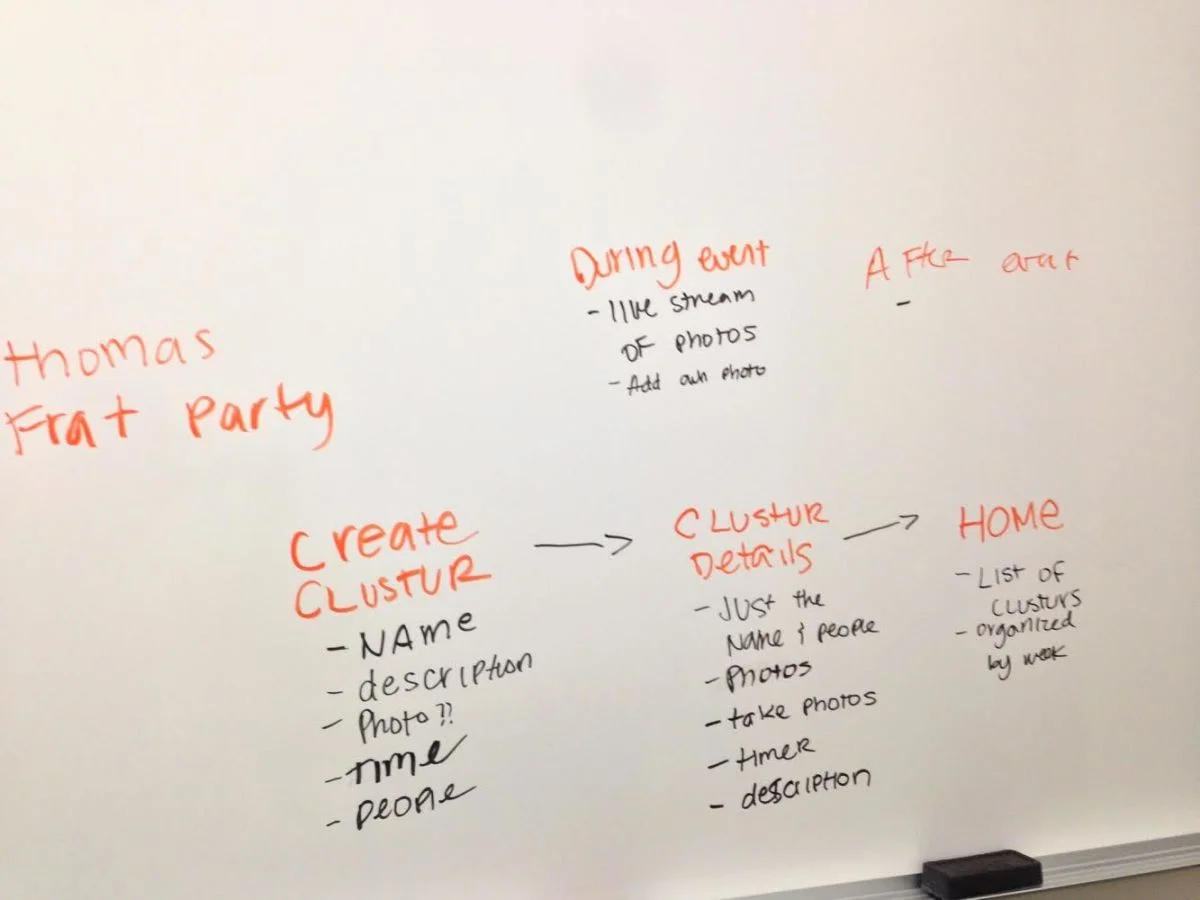 thomas
Frat party
During event
- live stream
of photos
- Add own photo
After event
-
Create
CLUSTUR
- NAme
- description
- Photo??
- time
- people
CLUSTUR
Details
- Just the
Name & people
- Photos
- take photos
- timer
- description
HOMe
- List of
Clusturs
- organized
by week